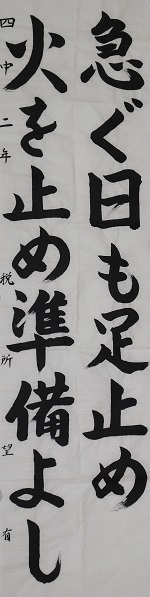 急ぐ日も足止め
火を止め準備よし
四中二年税所望有